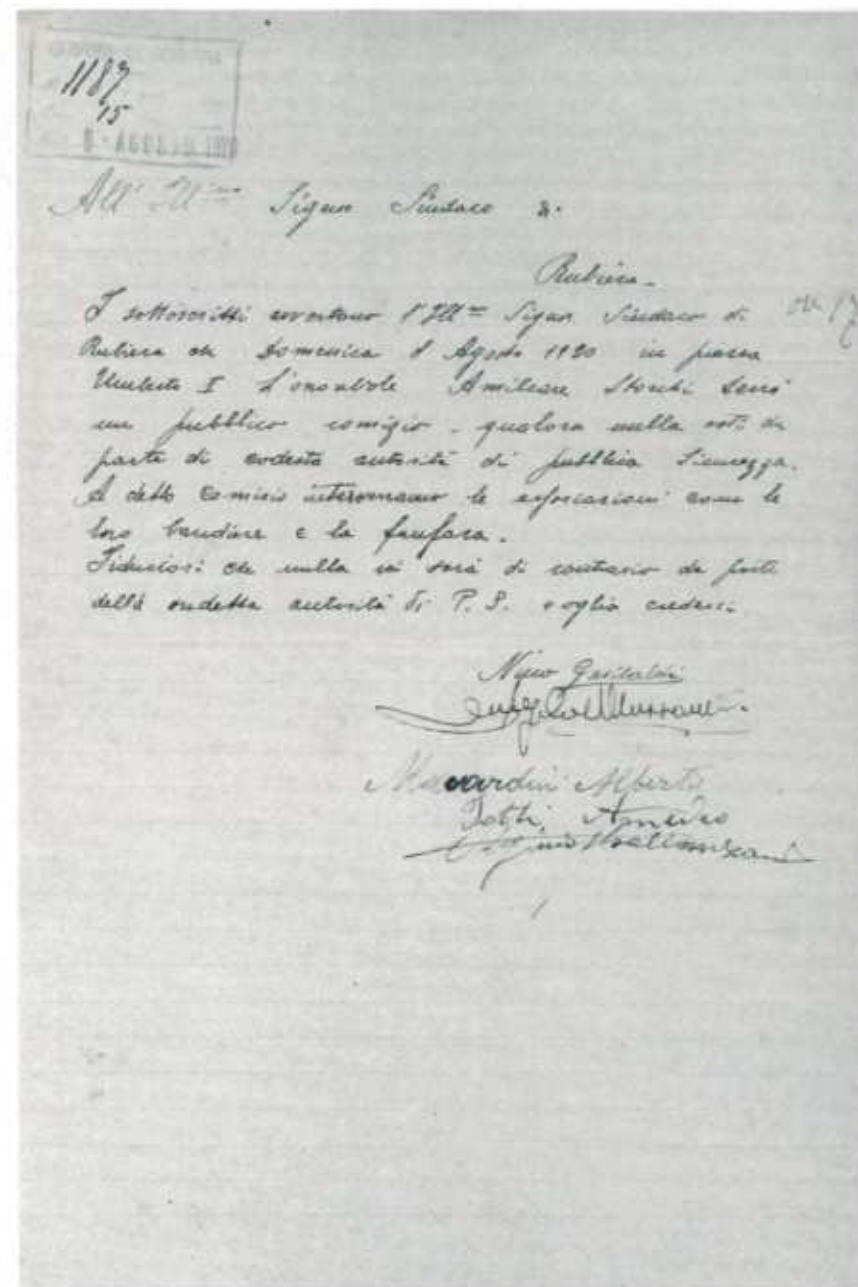 1187
15
8 - AGOSTO 1920
All' Ill.mo Signor Sindaco di
Rubiera -
I sottoscritti avvertano l'Ill.mo Signor Sindaco di
Rubiera che Domenica 8 Agosto 1920 in piazza
Umberto I L'onorevole Amilcare Storchi terrà
un pubblico comizio - qualora nulla osti da
parte di codesta autorità di pubblica Sicurezza.
A detto Comizio interverranno le associazioni con le
loro bandiere e la fanfara.
Fiduciosi che nulla vi sarà di contrario da parte
della sudetta autorità di P. S. voglia crederci
Nino
Alberto
Amedeo